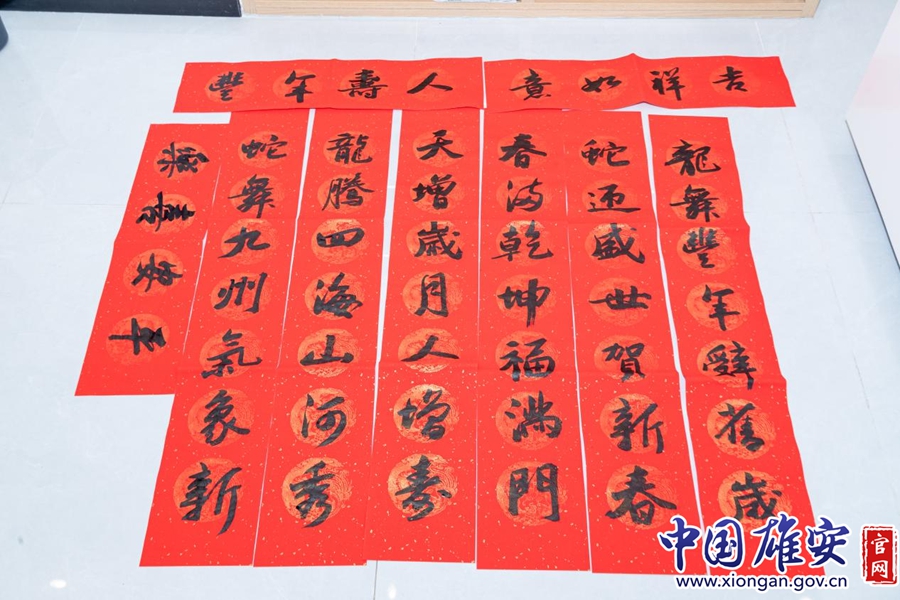 吉祥如意
人壽年豐
龍舞豐年辭舊歲
蛇迎盛世賀新春
春满乾坤福滿門
天增歲月人增寿
龍騰四海山河秀
蛇舞九州氣象新
平安喜樂
中国雄安 官网
www.xiongan.gov.cn